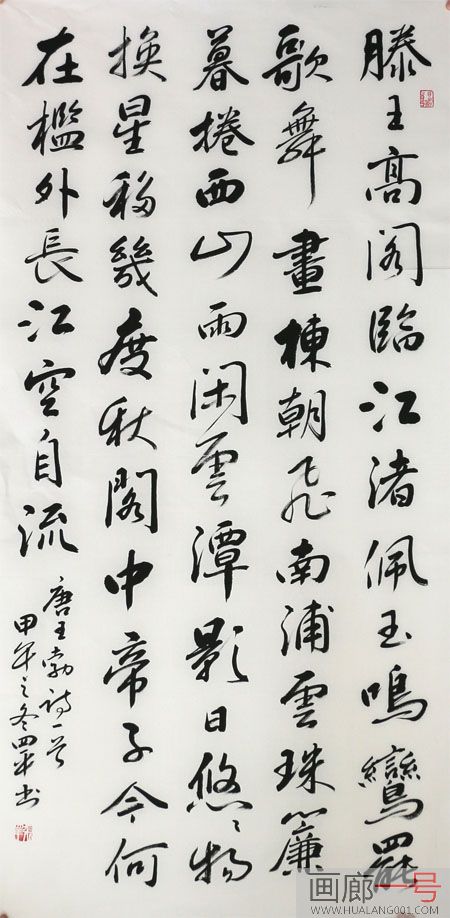 滕王高阁臨江渚佩玉鳴鸞罷
歌舞畫棟朝飛南浦雲珠簾
暮捲西山雨闲雲潭影日悠〻物
换星移幾度秋閣中帝子今何
在檻外長江空自流
唐王勃詩一首
甲午之冬书
画廊一号
WWW.HUALANG001.COM